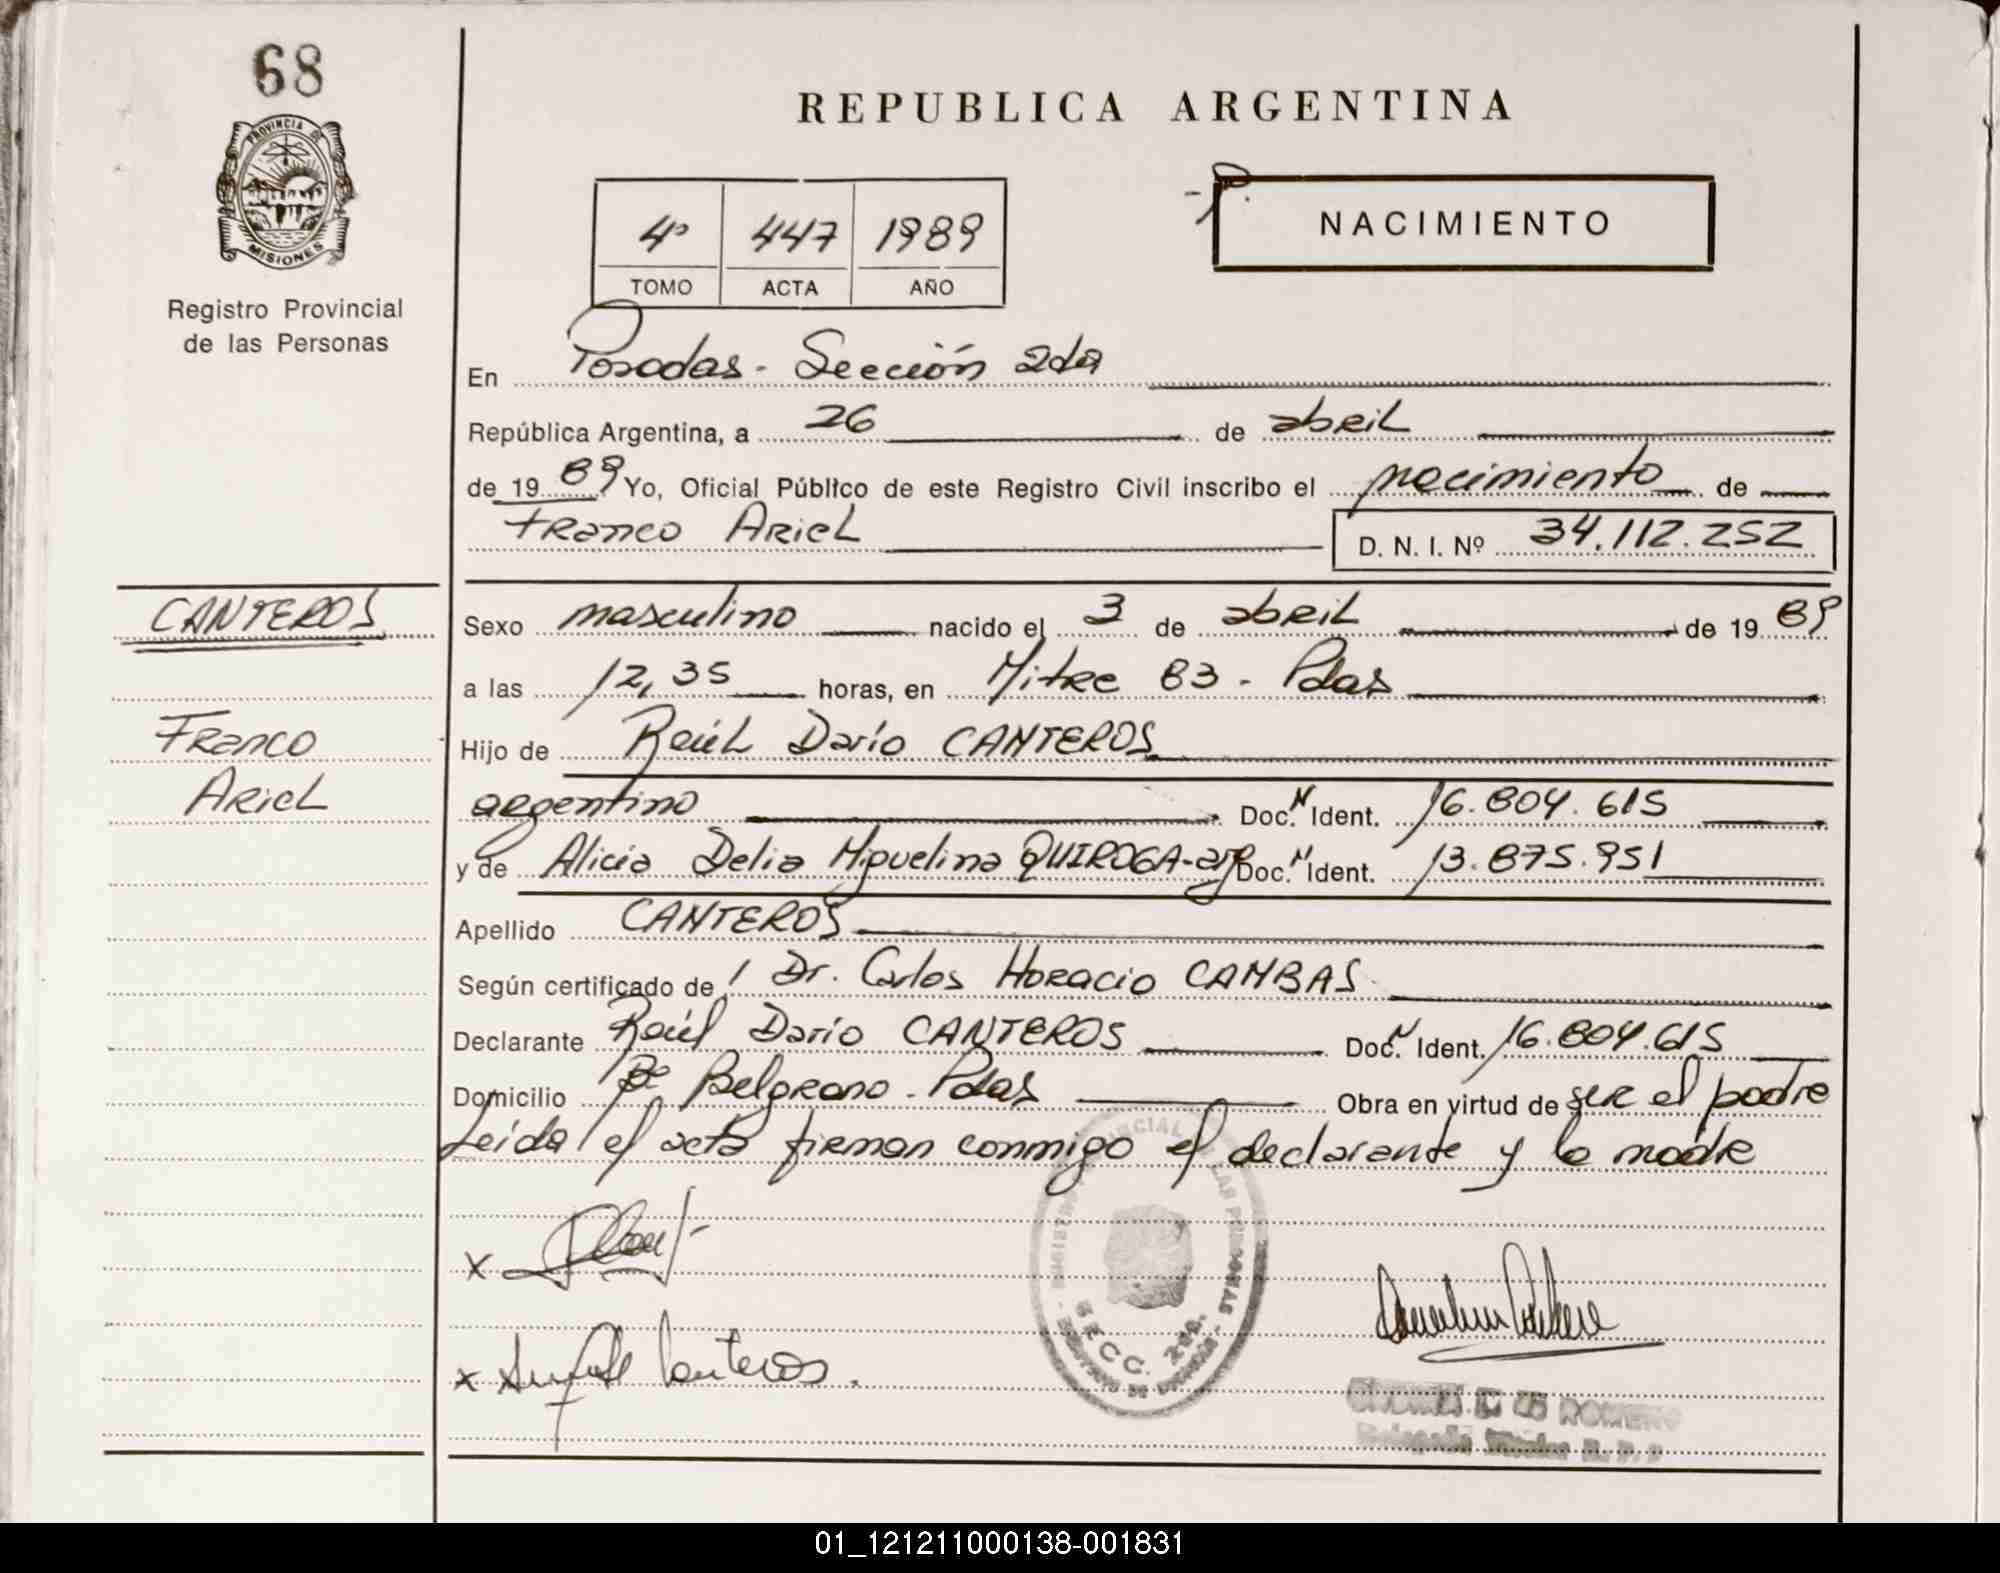 68
PROVINCIA DE
MISIONES
Registro Provincial
de las Personas
REPUBLICA ARGENTINA
4º 447 1989
TOMO ACTA AÑO
NACIMIENTO
En Posadas - Sección 2da
República Argentina, a 26 de abril
de 19 89 Yo, Oficial Público de este Registro Civil inscribo el nacimiento de
Franco Ariel D. N. I. Nº 34.112.252
CANTEROS
Franco
Ariel
Sexo masculino nacido el 3 de abril de 19 89
a las 12,35 horas, en Mitre 83 - Pdas
Hijo de Raúl Darío CANTEROS
argentino Doc. N Ident. 16.804.615
y de Alicia Delia Miguelina QUIROGA - arg Doc. N Ident. 13.875.951
Apellido CANTEROS
Según certificado de 1 Dr. Carlos Horacio CAMBAS
Declarante Raúl Darío CANTEROS Doc. N Ident. 16.804.615
Domicilio Bº Belgrano - Pdas Obra en virtud de ser el padre
Leída el acta firman conmigo el declarante y la madre
x
x Canteros.
SECC. 2da.
ROMERO
01_121211000138-001831